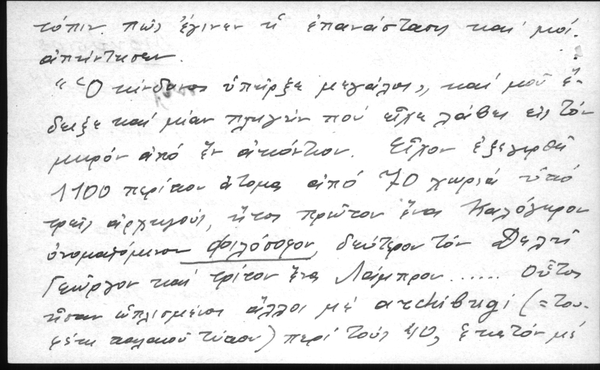 τόπιν πῶς ἔγινεν ἡ ἐπανάστασις καί μοί
ἀπήντησεν.
"Ὁ κίνδυνος ὑπῆρξε μεγάλος", καί μοῦ ἔ-
δειξε καί μίαν πληγήν πού εἶχε λάβει εἰς τόν
μηρόν ἀπό ἕν ἀκόντιον. Εἶχον ἐξεγερθῆ
1100 περίπου ἄτομα ἀπό 70 χωριά ὑπό
τρεῖς ἀρχηγούς, ἤτοι πρῶτον ἕνα Καλόγηρον
ὀνομαζόμενον Φιλόσοφον, δεύτερον τόν Δελῆ
Γεῶργον καί τρίτον ἕνα Λάμπρον ..... Οὗτοι
ἦσαν ὡπλισμένοι ἄλλοι μέ archibugi (= του-
φέκι παλαιοῦ τύπου) περί τούς 40, ἑκατόν μέ